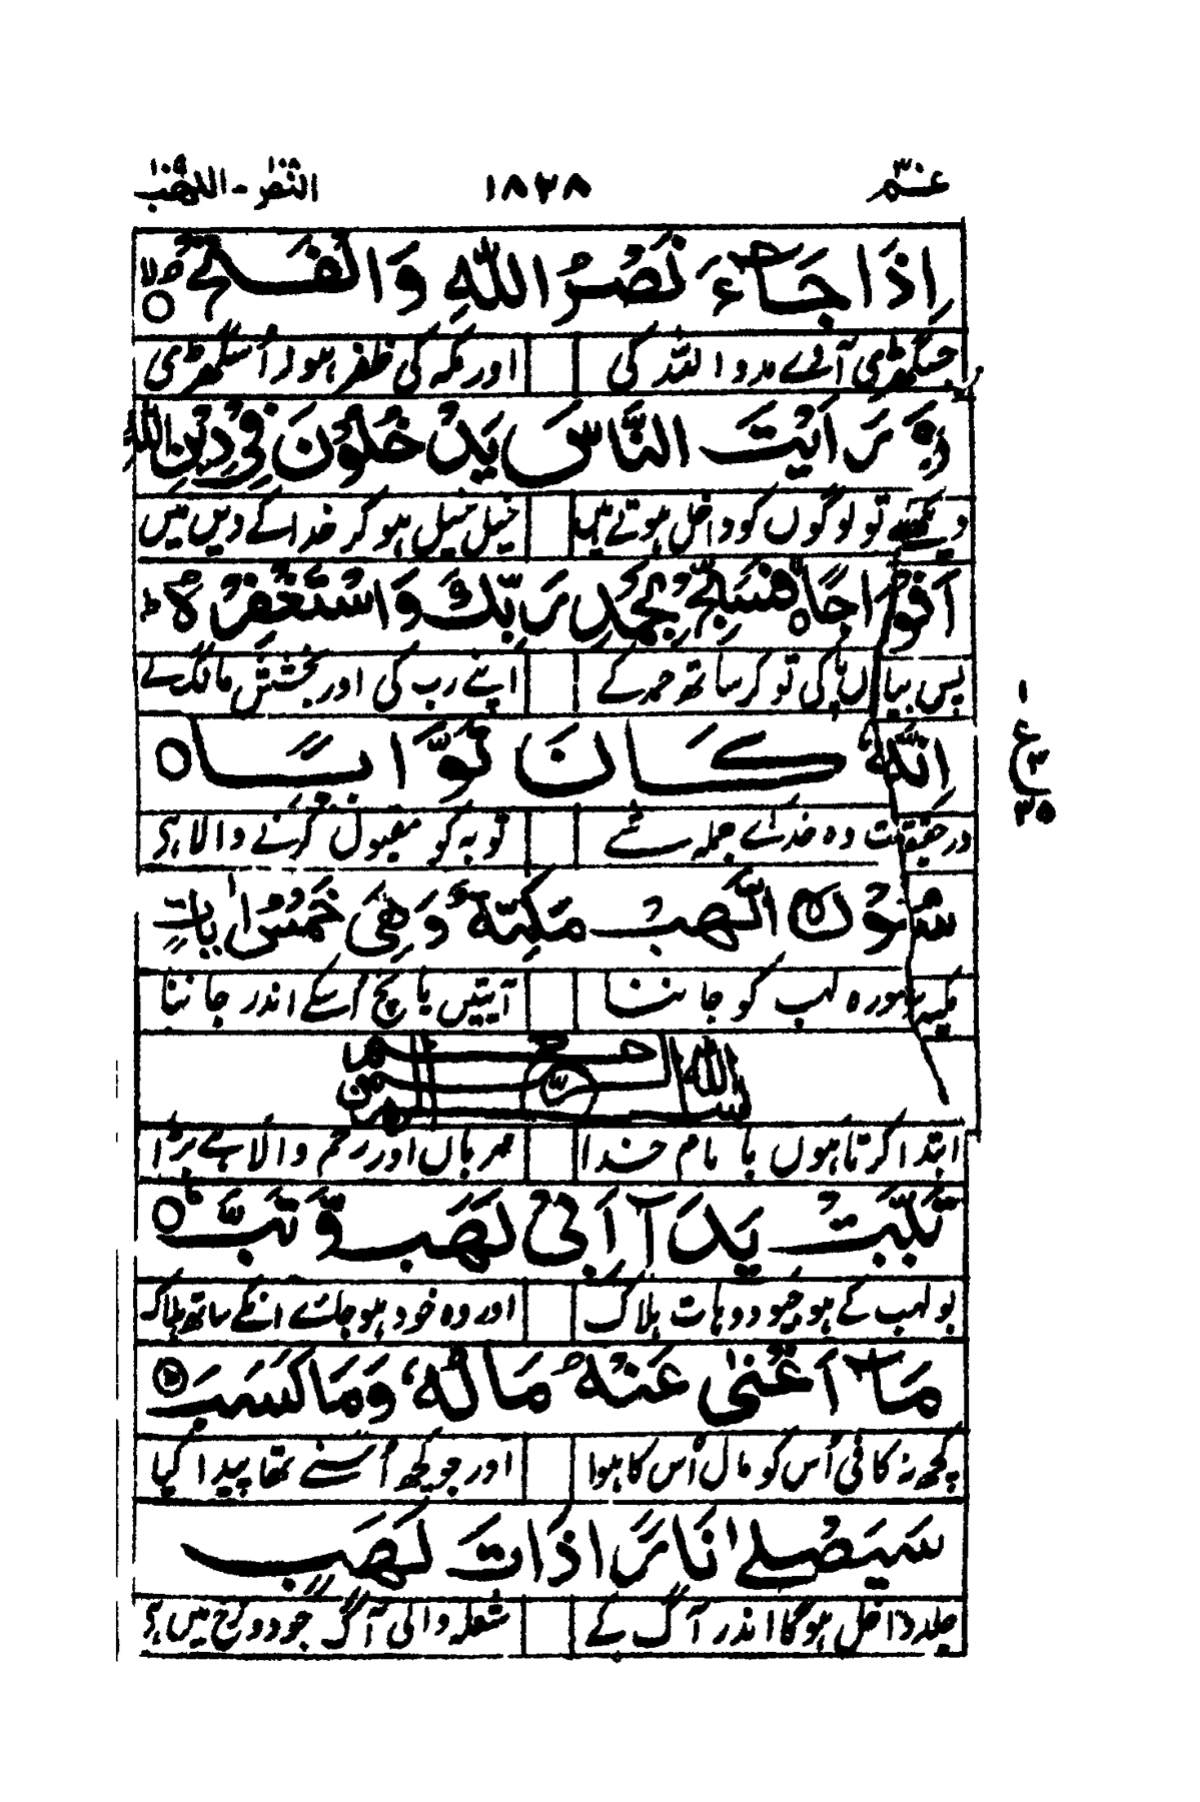 عـــم ٣٠ ١٨٣٨ النّصر ١١٠ - اللهب
اِذَا جَآءَ نَصْرُ اللّٰهِ وَالْفَتْحُ لا ○
جسگھڑی آئے مدد اللہ کی اور مکہ کی ظفر ہو اُسگھڑی
وَرَاَيْتَ النَّاسَ يَدْخُلُوْنَ فِيْ دِيْنِ اللّٰهِ
دیکھے تو لوگوں کو داخل ہوتے ہیں خیل خیل ہو کر خدا کے دیں میں
اَفْوَاجًا ○ فَسَبِّحْ بِحَمْدِ رَبِّكَ وَاسْتَغْفِرْهُ ط
پس بیاں پاکی تو کر ساتھ حمد کے اپنے رب کی اور بخشش مانگ لے
اِنَّهٗ كَانَ تَوَّابًا ○
در حقیقت وہ خدائے جملہ شے توبہ کو مقبول کرنے والا ہے
ع ٣ ٣٥
سُوْرَةُ اللَّهَبِ مَكِّيَّةٌ وَهِيَ خَمْسُ اٰيَاتٍ
مکیہ سورہ لہب کو جاننا آیتیں پانچ اُسکے اندر جاننا
بِسْمِ اللّٰهِ الرَّحْمٰنِ الرَّحِيْمِ
ابتدا کرتا ہوں با نام خدا مہرباں اور رحم والا ہے بڑا
تَبَّتْ يَدَآ اَبِيْ لَهَبٍ وَّتَبَّ ○
بولہب کے ہوجیو دوہات ہلاک اور وہ خود ہو جائے انکے ساتھ ہلاک
مَآ اَغْنٰى عَنْهُ مَالُهٗ وَمَا كَسَبَ
کچھ نہ کافی اُس کو مال اُس کا ہوا اور جو کچھ اُسنے تھا پیدا کیا
سَيَصْلٰى نَارًا ذَاتَ لَهَبٍ
جلد داخل ہوگا اندر آگ کے شعلہ والی آگ جو دوزخ میں ہے